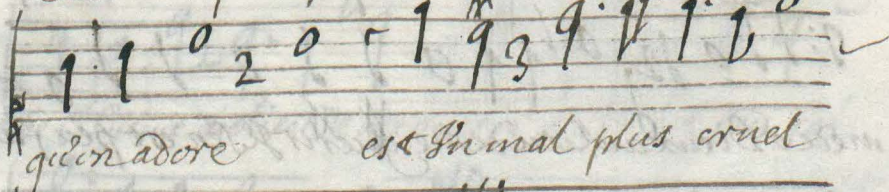 2 3
qu'on adore est Un mal plus cruel